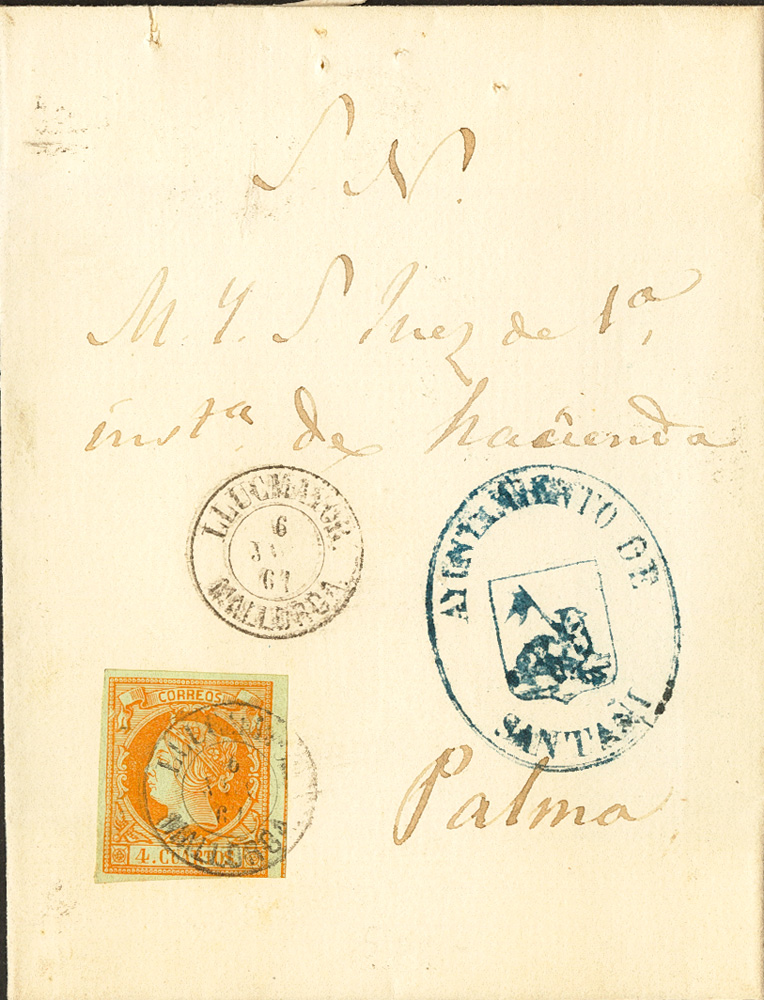 S N.
M. Y. S. Juez de 1ª
instª de hacienda
LLUCMAYOR.
6
61
MALLORCA
AYUNTAMIENTO DE
SANTAÑI
CORREOS
MALLORCA
4. CUARTOS
Palma